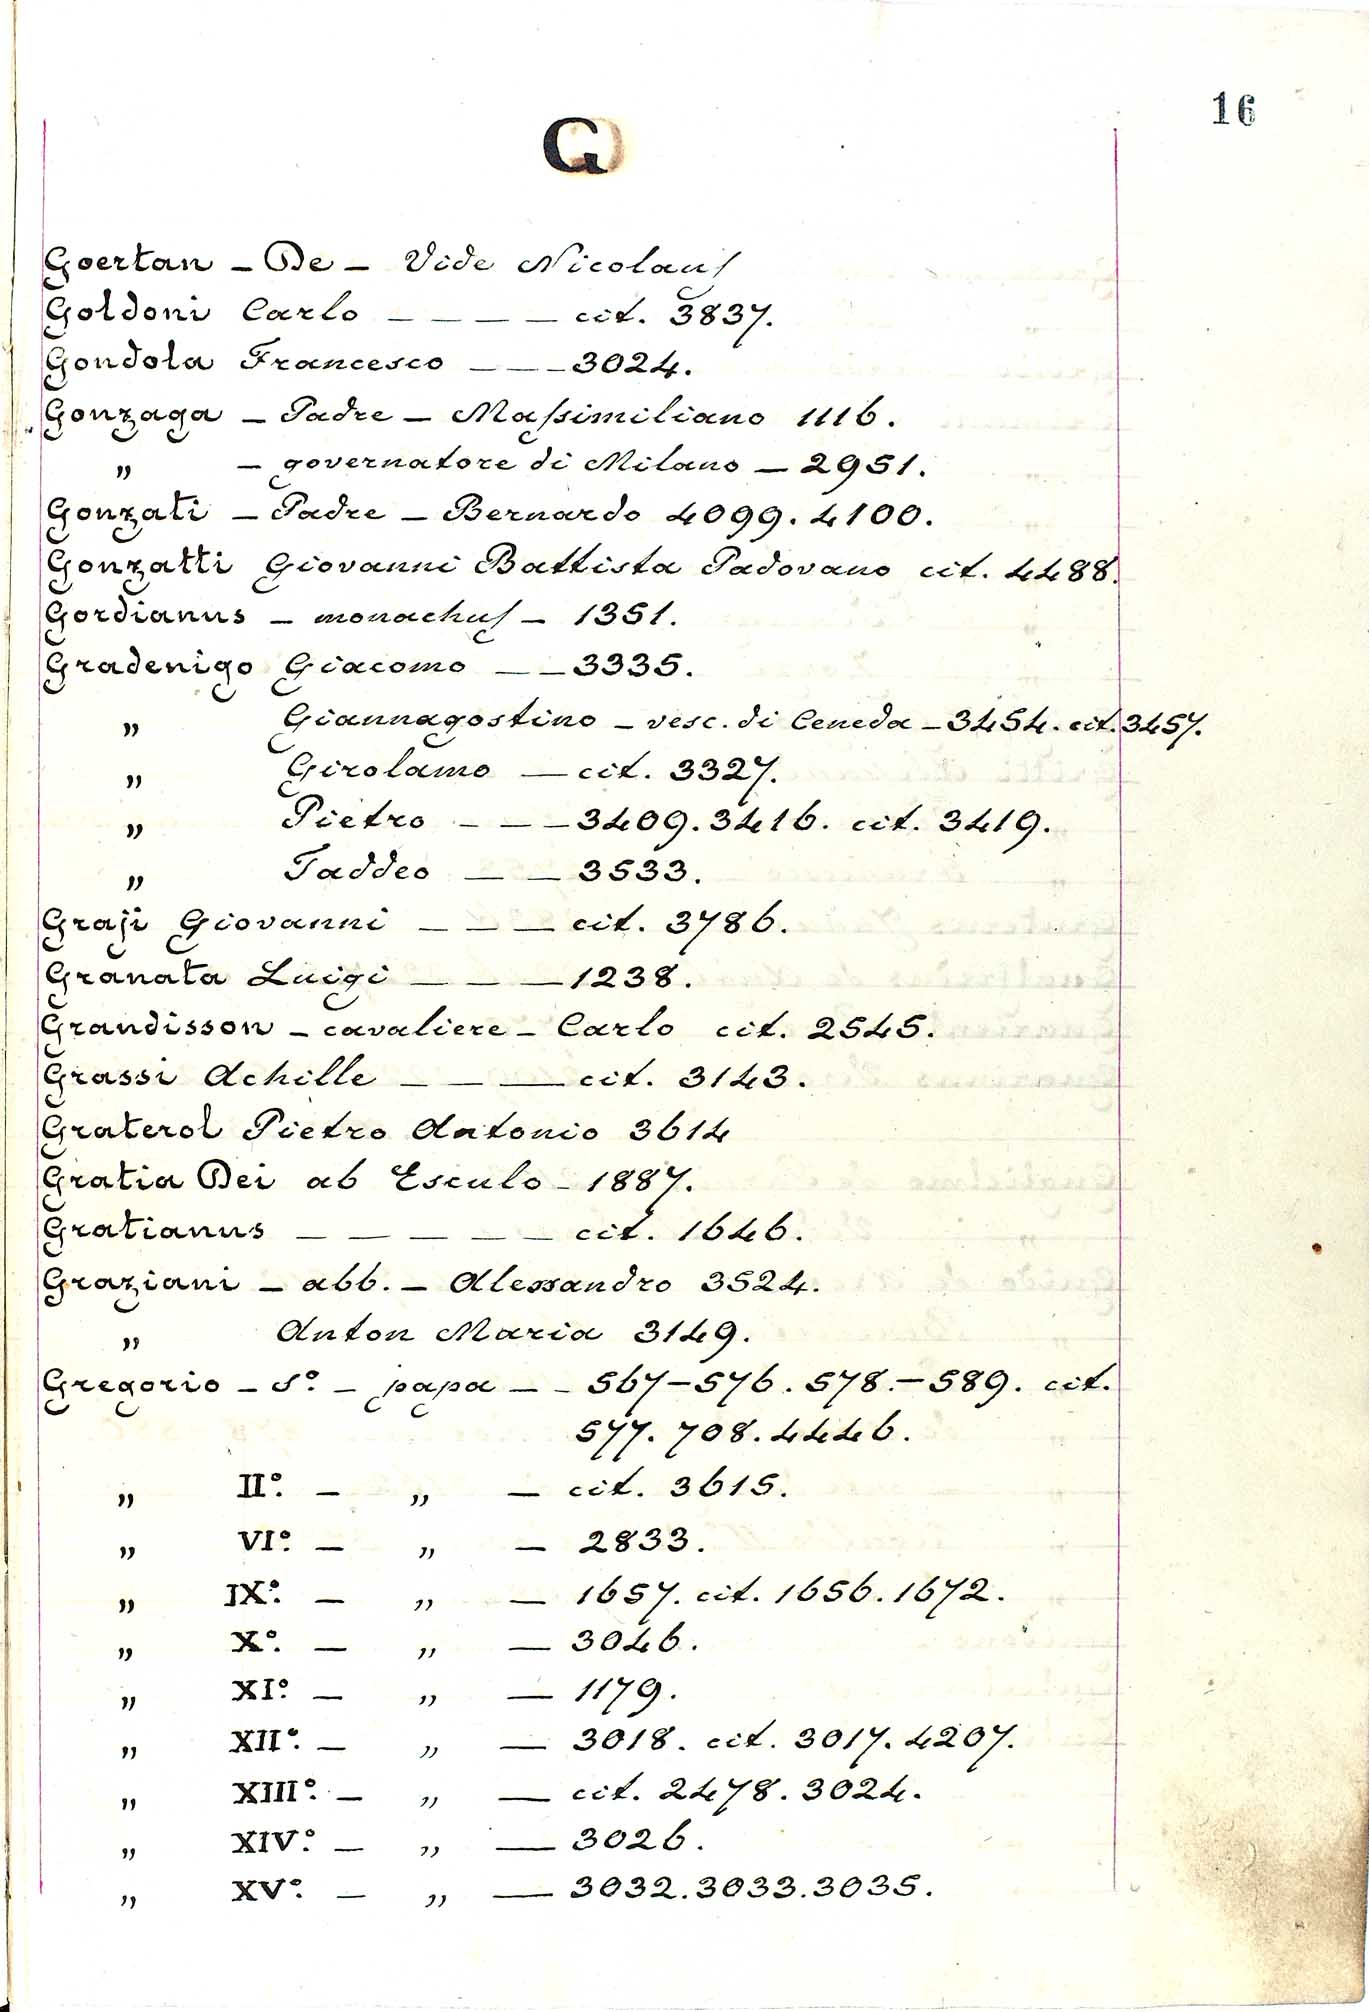 16
G
Goertan - De - Vide Nicolaus
Goldoni Carlo _ _ _ _ cit. 3837.
Gondola Francesco _ _ _ 3024.
Gonzaga - Padre - Massimiliano 1116.
„ - governatore di Milano - 2951.
Gonzati - Padre - Bernardo 4099. 4100.
Gonzatti Giovanni Battista Padovano cit. 4488.
Gordianus - monachus - 1351.
Gradenigo Giacomo _ _ 3335.
„ Giannagostino - vesc. di Ceneda - 3454. cit. 3457.
„ Girolamo _ cit. 3327.
„ Pietro _ _ _ 3409. 3416. cit. 3419.
„ Taddeo _ _ 3533.
Graji Giovanni _ _ _ cit. 3786.
Granata Luigi _ _ _ 1238.
Grandisson - cavaliere - Carlo cit. 2545.
Grassi Achille _ _ _ cit. 3143.
Graterol Pietro Antonio 3614
Gratia Dei ab Esculo - 1887.
Gratianus _ _ _ _ _ cit. 1646.
Graziani - abb. - Alessandro 3524.
„ Anton Maria 3149.
Gregorio - S.º - papa _ _ 567-576. 578.-589. cit.
577. 708. 4446.
„ II.º - „ - cit. 3615.
„ VI.º - „ - 2833.
„ IX.º - „ - 1657. cit. 1656. 1672.
„ X.º - „ - 3046.
„ XI.º - „ - 1179.
„ XII.º - „ - 3018. cit. 3017. 4207.
„ XIII.º - „ - cit. 2478. 3024.
„ XIV.º - „ - 3026.
„ XV.º - „ - 3032. 3033. 3035.